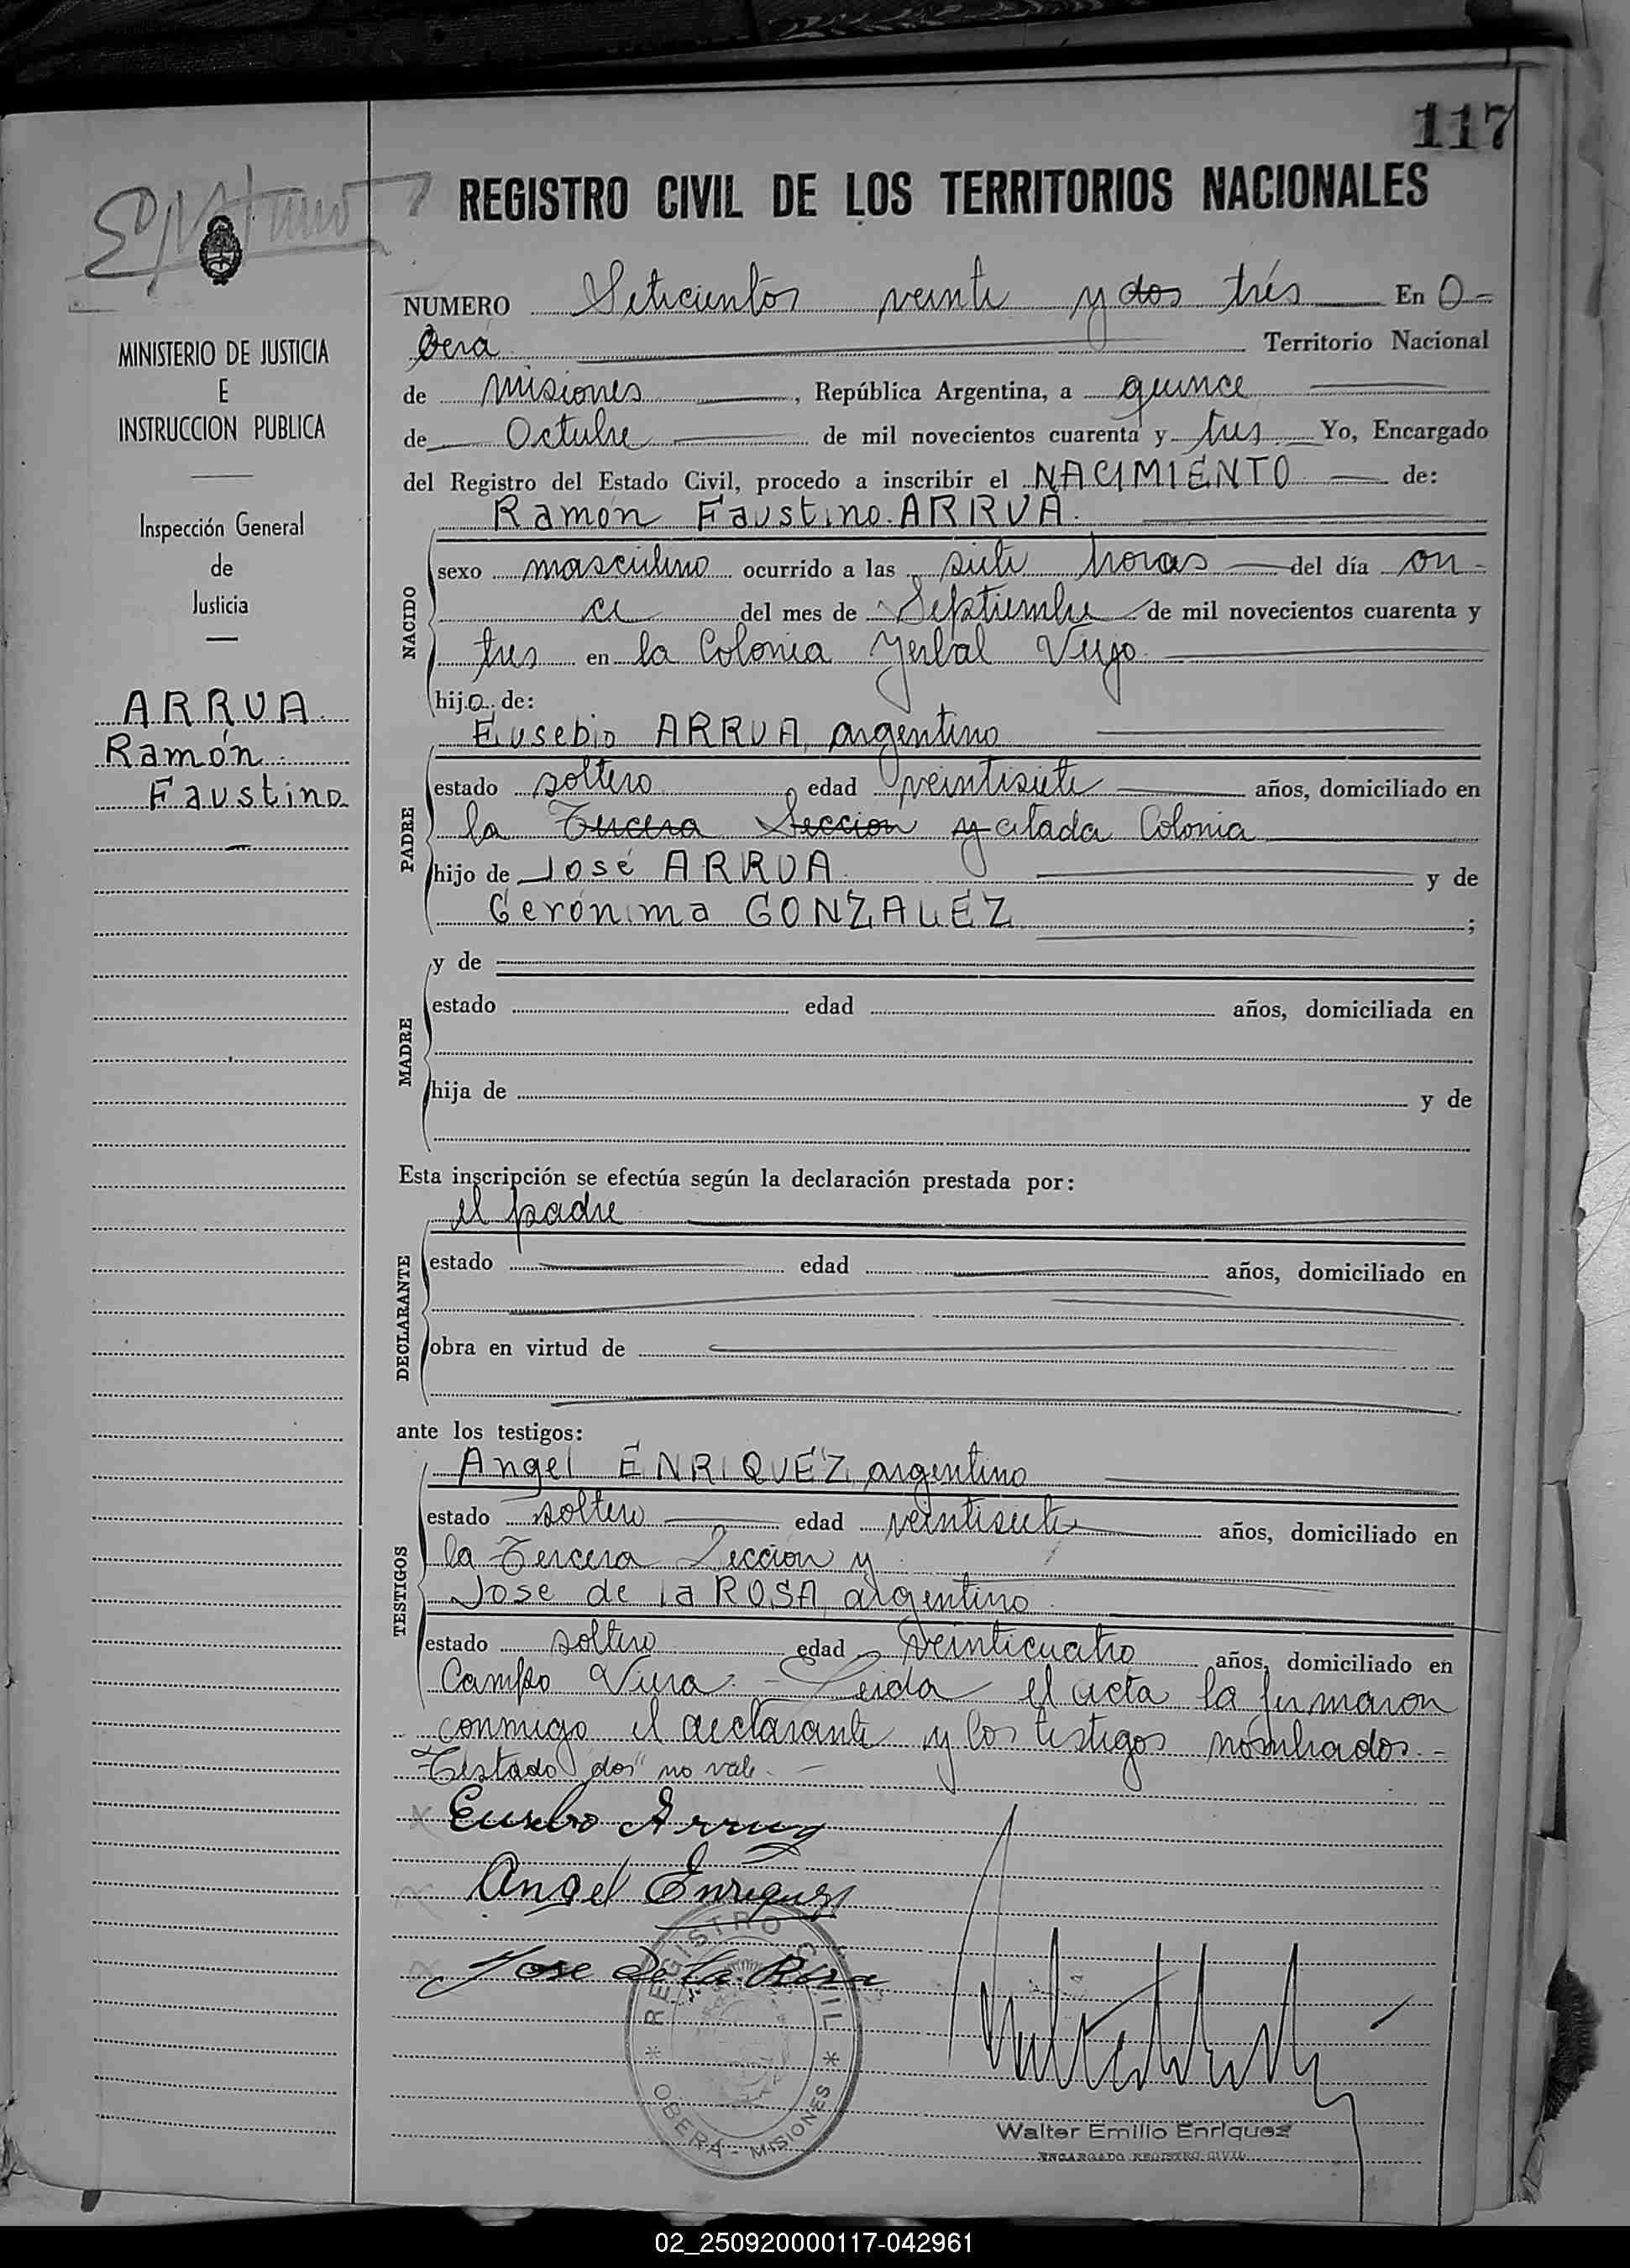 117
REGISTRO CIVIL DE LOS TERRITORIOS NACIONALES
MINISTERIO DE JUSTICIA
E
INSTRUCCION PUBLICA
Inspección General
de
Justicia
ARRUA
Ramón
Faustino
NUMERO Setecientos veinte y dos trés En O-
berá Territorio Nacional
de Misiones, República Argentina, a quince
de Octubre de mil novecientos cuarenta y tres Yo, Encargado
del Registro del Estado Civil, procedo a inscribir el NACIMIENTO de:
Ramón Faustino ARRUA.
NACIDO
sexo masculino ocurrido a las siete horas del día on-
ce del mes de Septiembre de mil novecientos cuarenta y
tres en la Colonia Yerbal Viejo
hijo de:
PADRE
Eusebio ARRUA, argentino
estado soltero edad veintisiete años, domiciliado en
la Tercera Seccion y citada Colonia
hijo de José ARRUA y de
Gerónima GONZALEZ ;
MADRE
y de
estado edad años, domiciliada en
hija de y de
Esta inscripción se efectúa según la declaración prestada por:
DECLARANTE
el padre
estado edad años, domiciliado en
obra en virtud de
ante los testigos:
TESTIGOS
Angel ENRIQUEZ, argentino
estado soltero edad veintisiete años, domiciliado en
la Tercera Seccion y
José de la ROSA, argentino
estado soltero edad veinticuatro años, domiciliado en
Campo Viera. - Leida el acta la firmaron
conmigo el declarante y los testigos nombrados. -
Testado "dos" no vale. -
Eusebio Arrua
Angel Enriquez
Jose De La Rosa
REGISTRO CIVIL
* OBERA - MISIONES *
Walter Emilio Enriquez
ENCARGADO REGISTRO CIVIL
02_250920000117-042961